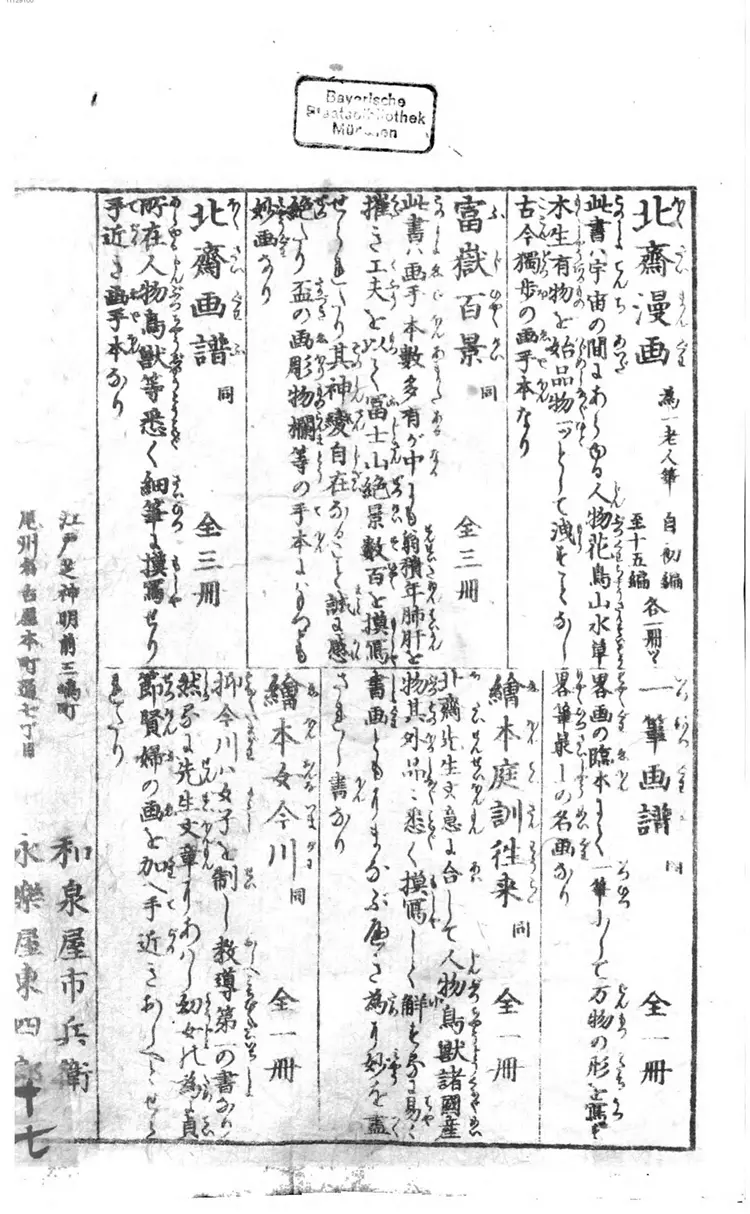 Bayerische
Staatsbibliothek
München
北齋漫画
為一老人筆
自初編
至十五編
各一冊ツヽ
此書ハ宇宙の間にあらゆる人物花鳥山水草
木生有物を始品物一ツとして洩すことなし
古今獨歩の画手本なり
富嶽百景
同
全三冊
此書ハ画手本數多有が中にも翁積年肺肝を
摧き工夫をこらして冨士山絶景數百を摸寫
せられたり其神變自在なること誠に感
絶たり盃の画彫物欄等の手本にハもつとも
妙画なり
北齋画譜
同
全三冊
所在人物鳥獸等悉く細筆に摸寫せり
手近き画手本なり
一筆画譜
同
全一冊
畧画の臨本にして一筆にして万物の形を寫す
畧筆最上の名画なり
繪本庭訓徃来
同
全一冊
北齋先生文意に合して人物鳥獸諸國産
物其外品々悉く摸寫して解し易く
書画ともりまなぶべき為り妙を盡
されし書なり
繪本女今川
同
全一冊
抑今川ハ女子を制し教導第一の書なり
然るに先生文章りあハし幼女の為貞
節賢婦の画を加へ手近きおしへとせら
れたり
江戸芝神明前三嶋町
和泉屋市兵衛
尾州名古屋本町通七丁目
永樂屋東四郎
十七